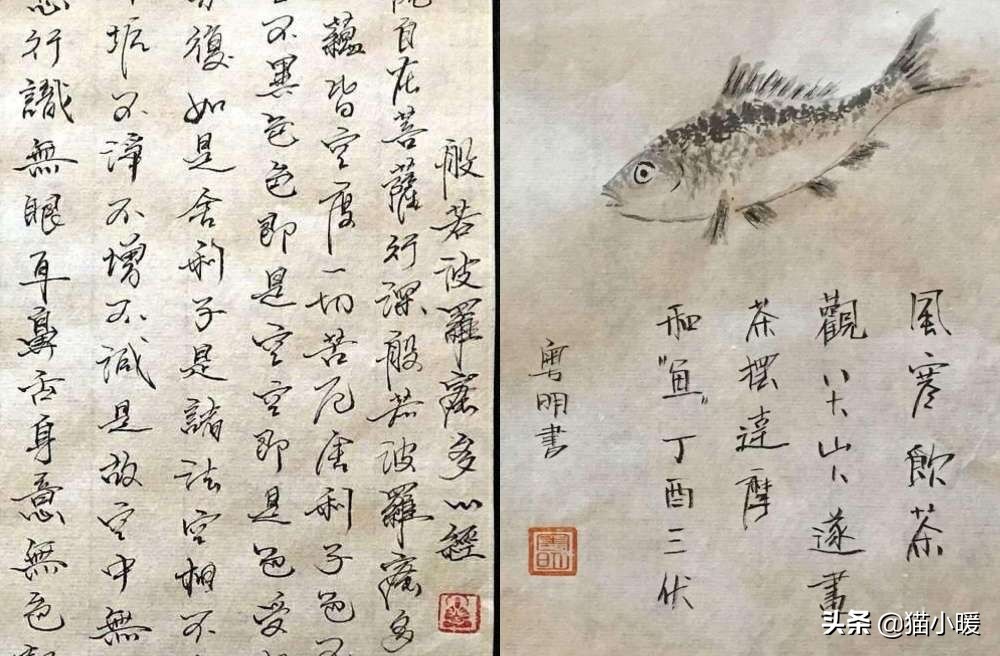 般若波羅蜜多心經
自在菩薩行深般若波羅蜜多
蘊皆空度一切苦厄舍利子色不
不異色色即是空空即是色受
復如是舍利子是諸法空相不
垢不淨不增不減是故空中無
行識無眼耳鼻舌身意無色
風寒飲茶
觀八大山人遂畫
茶摆達摩
和"魚"丁酉三伏
粤明書
头条 @猫小暖